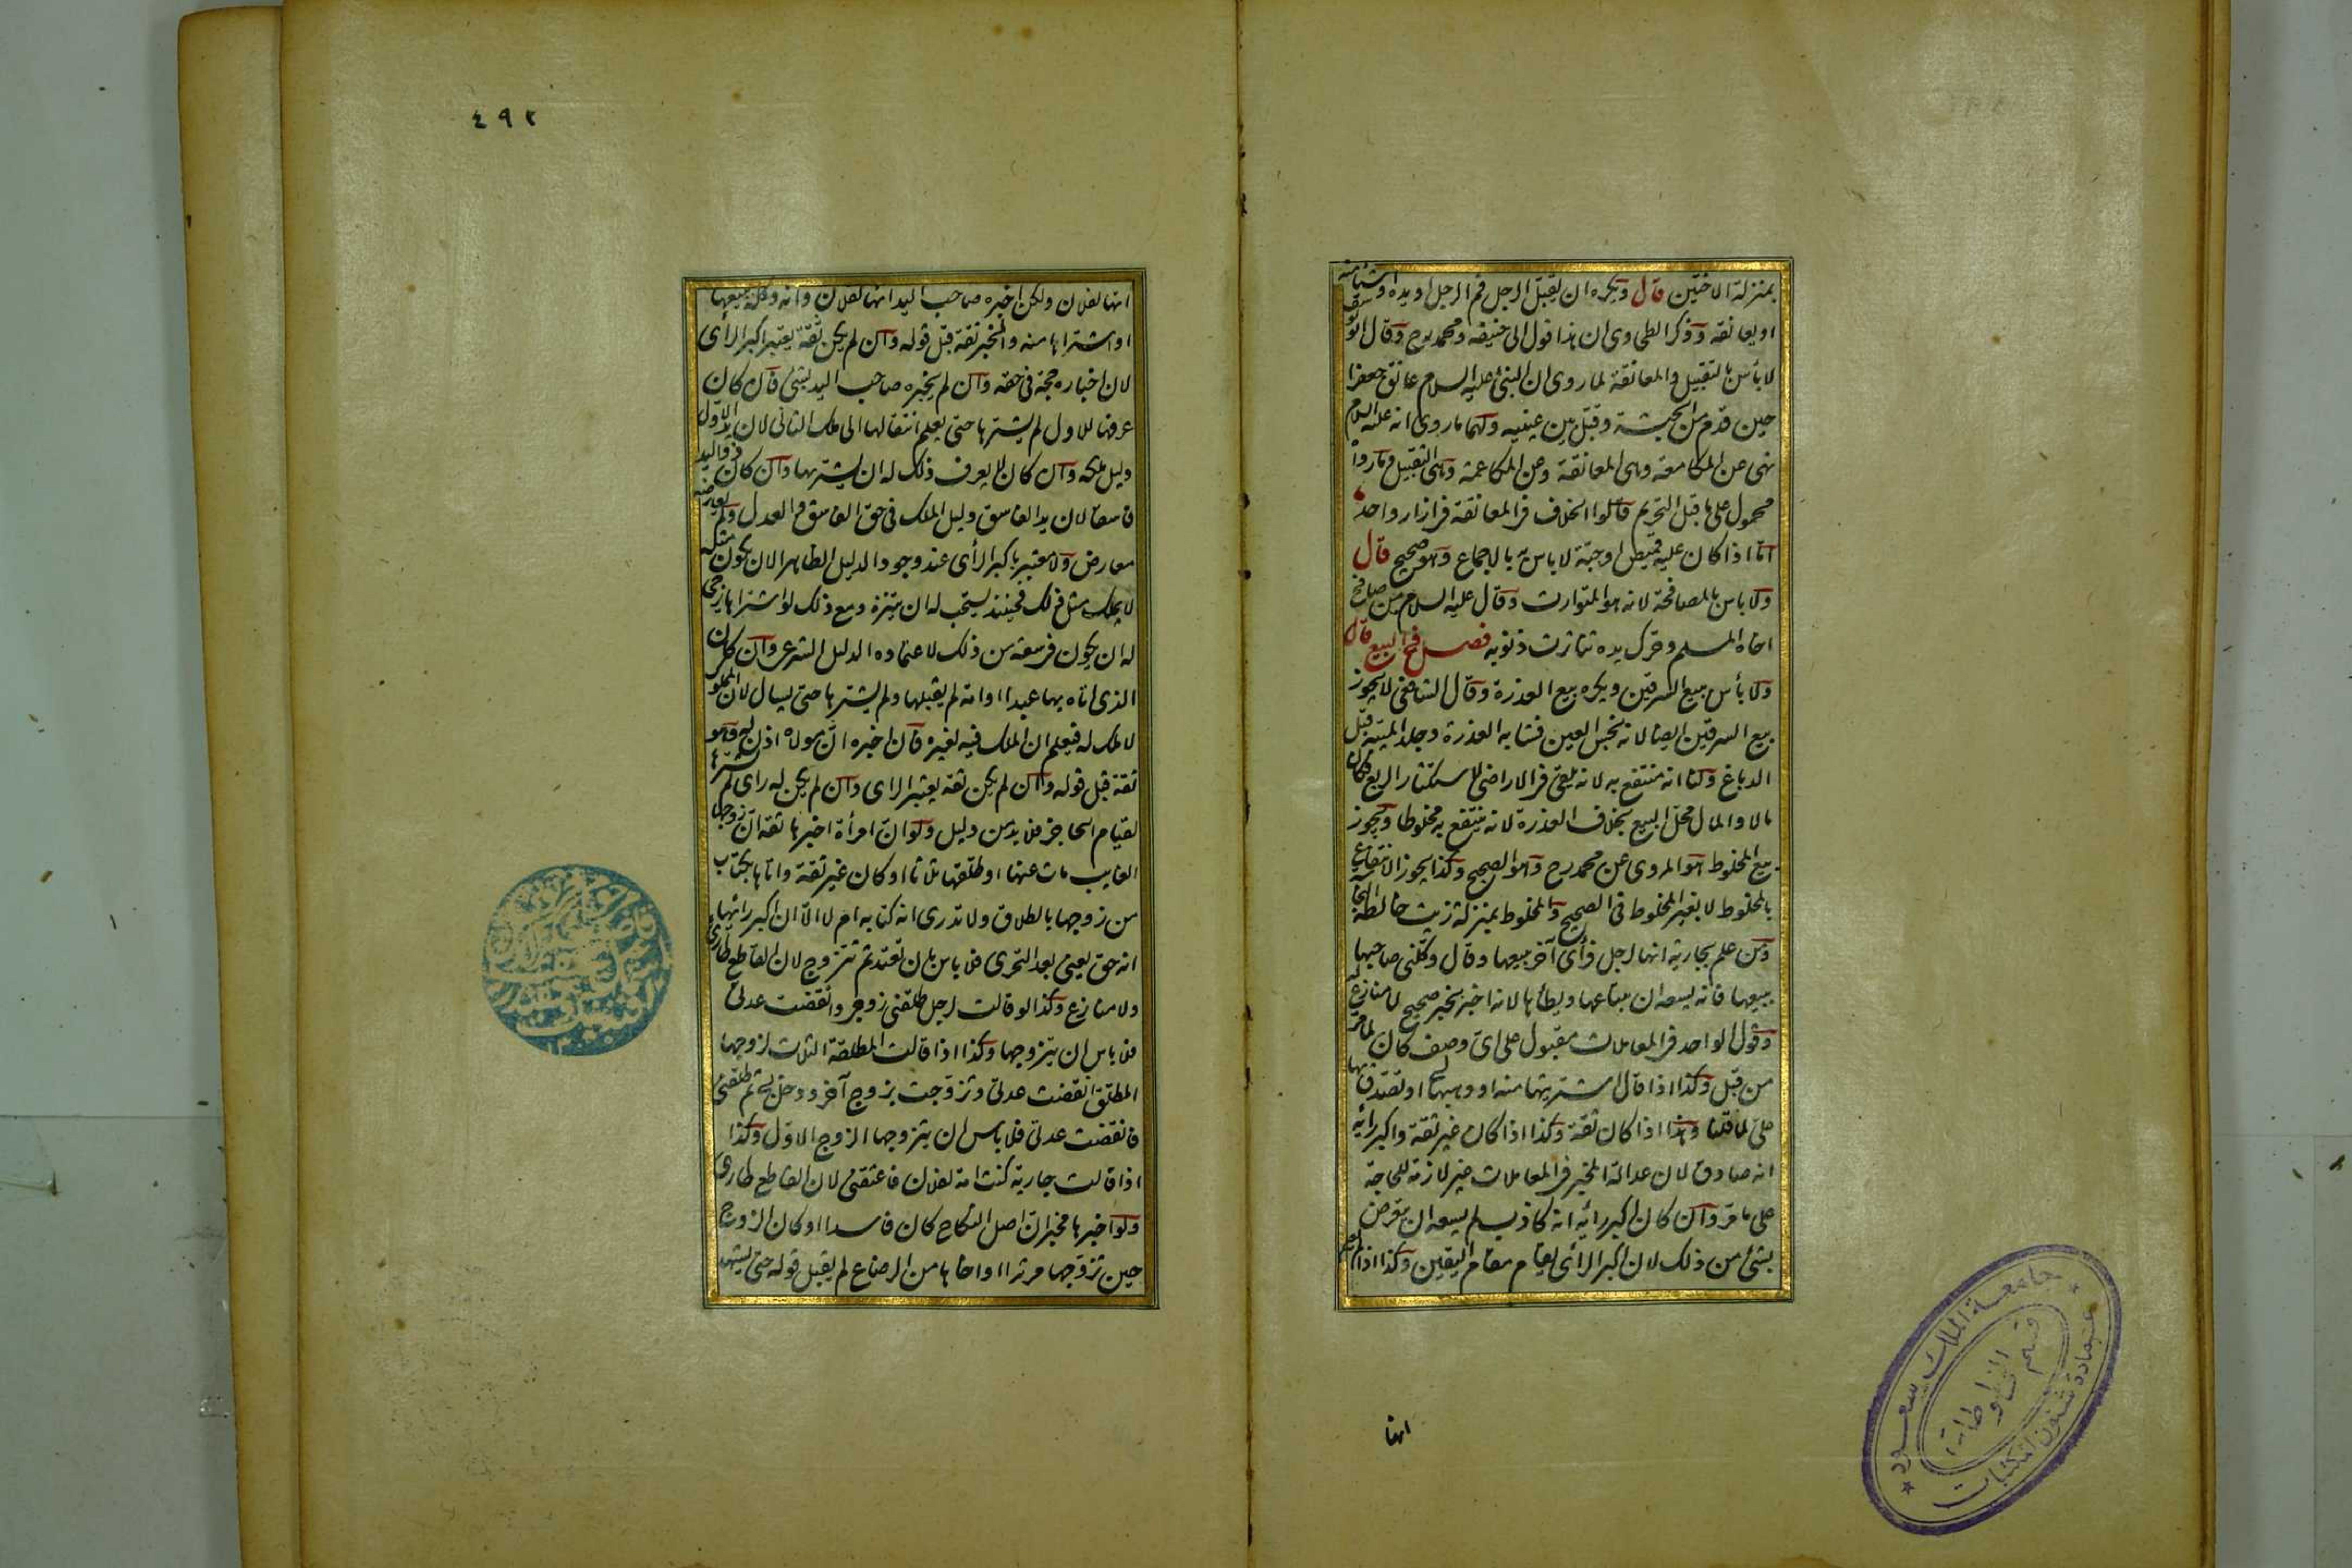 بمنزلة الاختين قال ويكره ان يقبل الرجل فم الرجل او يده او شيئا منه
او يعانقه وذكر الطحاوى ان هذا قول ابى حنيفة ومحمد رح وقال ابو يوسف
لا بأس بالتقبيل والمعانقة لما روى ان النبى عليه السلام عانق جعفرا
حين قدم من الحبشة وقبل بين عينيه ولهما ما روى انه عليه السلام
نهى عن المكامعة وهى المعانقة وعن المكاعمة وهى التقبيل وما رواه
محمول على ما قبل التحريم قالوا الخلاف فى المعانقة فى ازار واحد
اما اذا كان عليه قميص او جبة لا باس به بالاجماع وهو صحيح قال
ولا باس بالمصافحة لانه هو المتوارث وقال عليه السلام من صافح
اخاه المسلم وحرك يده تناثرت ذنوبه فصل فى البيع قال
ولا بأس ببيع السرقين ويكره بيع العذرة وقال الشافعى لا يجوز
بيع السرقين ايضا لانه نجس العين فشابه العذرة وجلد الميتة قبل
الدباغ ولنا انه منتفع به لانه يلقى فى الاراضى لاستكثار الريع فكان
مالا والمال محل البيع بخلاف العذرة لانه ينتفع به مخلوطا ويجوز
بيع المخلوط هو المروى عن محمد رح وهو الصحيح وكذا يجوز الانتفاع
بالمخلوط لا بغير المخلوط فى الصحيح والمخلوط بمنزلة زيت خالطه النجاسة
ومن علم بجارية انها لرجل فرأى آخر يبيعها وقال وكلنى صاحبها
ببيعها فانه يسعه ان يبتاعها ويطأها لانه اخبر بخبر صحيح لا منازع له
وقول الواحد فى المعاملات مقبول على اى وصف كان لما مر
من قبل وكذا اذا قال اشتريتها منه او وهبها لى او تصدق بها
على لما قلنا وهذا اذا كان ثقة وكذا اذا كان غير ثقة واكبر رأيه
انه صادق لان عدالة المخبر فى المعاملات غير لازمة للحاجة
على ما مر وان كان اكبر رائه انه كاذب لم يسعه ان يتعرض
بشئ من ذلك لان اكبر الرأى يقام مقام اليقين وكذا اذا لم يعلم
انها
٤٩٢
انها لفلان ولكن اخبره صاحب اليد انها لفلان وانه وكله ببيعها
او اشتراها منه والمخبر ثقة قبل قوله وان لم يكن ثقة يعتبر اكبر الرأى
لان اخباره حجة فى حقه وان لم يخبره صاحب اليد بشئ فان كان
عرفها للاول لم يشترها حتى يعلم انتقالها الى ملك الثانى لان يد الاول
دليل ملكه وان كان لا يعرف ذلك له ان يشتريها وان كان ذو اليد
فاسقا لان يد الفاسق دليل الملك فى حق الفاسق والعدل ولم يعارضه
معارض ولا معتبر باكبر الرأى عند وجود الدليل الظاهر الا ان يكون مثله
لا يملك مثل ذلك فحينئذ يستحب له ان يتنزه ومع ذلك لو اشتراها يرجى
له ان يكون فى سعة من ذلك لاعتماده الدليل الشرعى وان كان
الذى اتاه بها عبدا او امة لم يقبلها ولم يشترها حتى يسال لان المملوك
لا ملك له فيعلم ان الملك فيه لغيره فان اخبره ان مولاه اذن له وهو
ثقة قبل قوله وان لم يكن ثقة يعتبر الراى وان لم يكن له راى لم يشترها
لقيام الحاجز فلا بد من دليل ولو ان امرأة اخبرها ثقة ان زوجها
الغايب مات عنها او طلقها ثلاثا او كان غير ثقة واتاها بكتاب
من زوجها بالطلاق ولا تدرى انه كتابه ام لا الا ان اكبر رائها
انه حق يعنى بعد التحرى فلا باس بان تعتد ثم تتزوج لان القاطع طارئ
ولا منازع وكذا لو قالت لرجل طلقنى زوجى وانقضت عدتى
فلا باس ان يتزوجها وكذا اذا قالت المطلقة الثلاث لزوجها
المطلق انقضت عدتى وتزوجت بزوج آخر ودخل بى ثم طلقنى
فانقضت عدتى فلا باس ان يتزوجها الزوج الاول وكذا
اذا قالت جارية كنت امة لفلان فاعتقنى لان القاطع طارئ
ولو اخبرها مخبر ان اصل النكاح كان فاسدا او كان الزوج
حين تزوجها مرتدا او اخاها من الرضاع لم يقبل قوله حتى يشهد
جامعة الملك سعود
قسم المخطوطات
عمادة شئون المكتبات